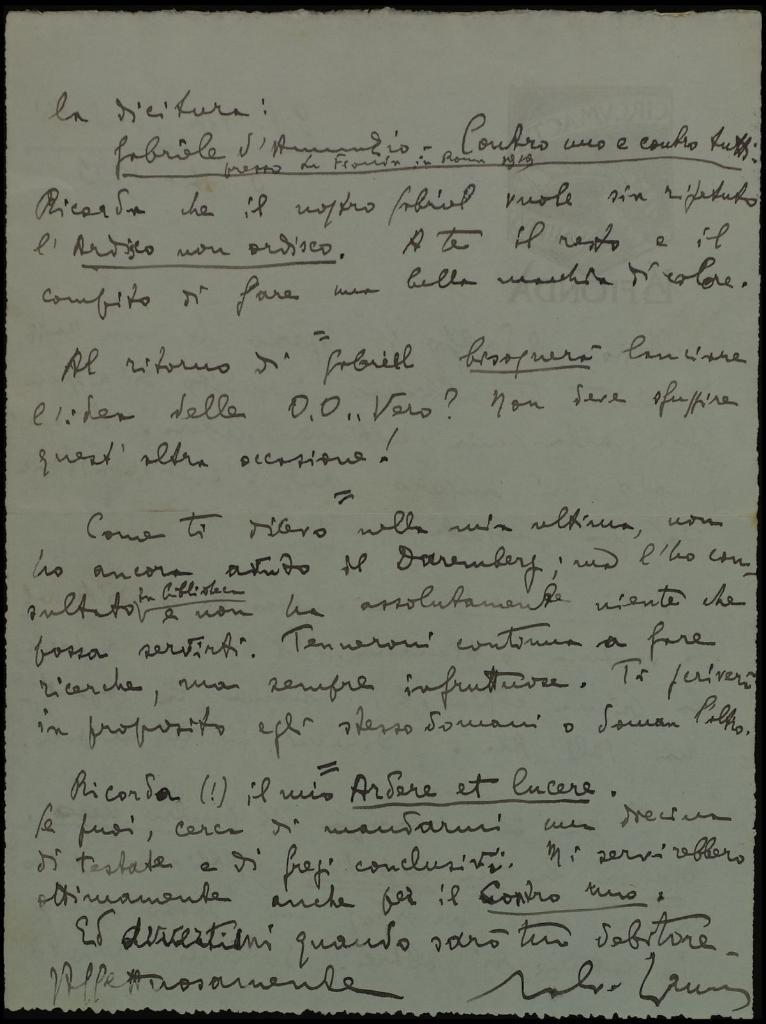 la dicitura:
Gabriele d'Annunzio - Contro uno e contro tutti.
presso La Fionda in Roma 1919
Ricorda che il nostro Gabriel vuole sia ripetuto
l'Ardisco non ordisco. A te il resto e il
compito di fare una bella macchia di colore.
=
Al ritorno di Gabriel bisognerà lanciare
l'idea delle O.O.. Vero? Non deve sfuggire
quest'altra occasione!
=
Come ti dicevo nella mia ultima, non
ho ancora avuto il Daremberg; ma l'ho con-
sultato in biblioteca e non ha assolutamente niente che
possa servirti. Tenneroni continua a fare
ricerche, ma sempre infruttuose. Ti scriverà
in proposito egli stesso domani o doman l'altro.
=
Ricorda (!) il mio Ardere et lucere.
Se puoi, cerca di mandarmi una diecina
di testate e di fregi conclusivi. Mi servirebbero
ottimamente anche per il Contro uno.
Ed avvertimi quando sarò tuo debitore.
Affettuosamente